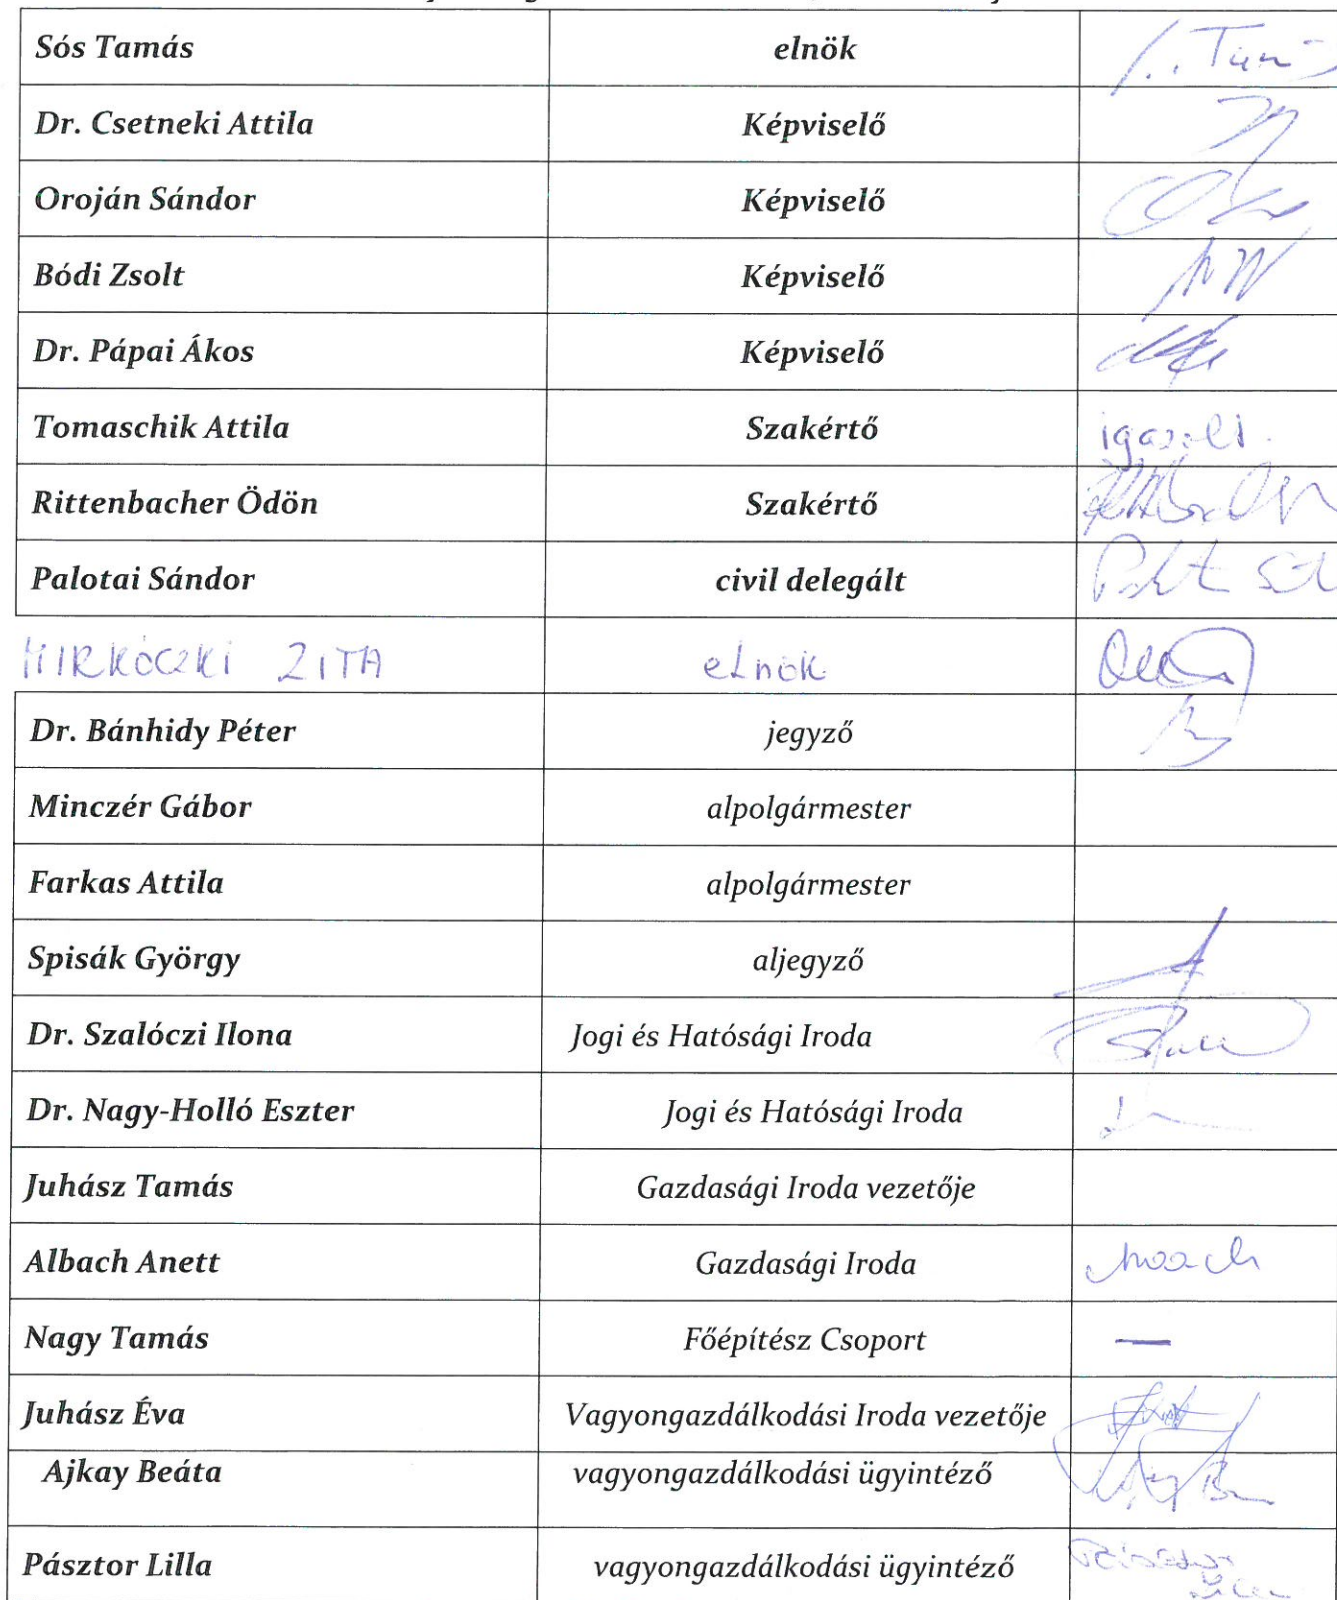 Sós Tamás elnök
Dr. Csetneki Attila Képviselő
Oroján Sándor Képviselő
Bódi Zsolt Képviselő
Dr. Pápai Ákos Képviselő
Tomaschik Attila Szakértő igazolt.
Rittenbacher Ödön Szakértő
Palotai Sándor civil delegált
MIRKÓCZKI ZITA elnök
Dr. Bánhidy Péter jegyző
Minczér Gábor alpolgármester
Farkas Attila alpolgármester
Spisák György aljegyző
Dr. Szalóczi Ilona Jogi és Hatósági Iroda
Dr. Nagy-Holló Eszter Jogi és Hatósági Iroda
Juhász Tamás Gazdasági Iroda vezetője
Albach Anett Gazdasági Iroda
Nagy Tamás Főépítész Csoport —
Juhász Éva Vagyongazdálkodási Iroda vezetője
Ajkay Beáta vagyongazdálkodási ügyintéző
Pásztor Lilla vagyongazdálkodási ügyintéző